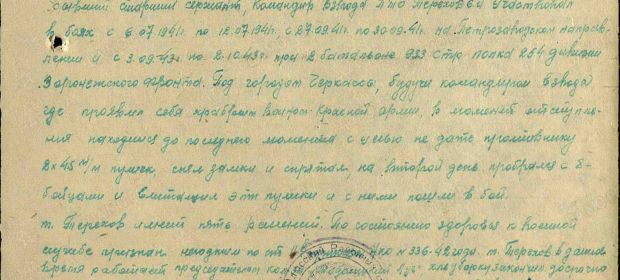 Бывший старший сержант, командир взвода ПТО Терехов участвовал
в боях с 6.07.1941г. по 12.07.1941г. с 27.09.41г. по 30.09.41г. на Петрозаводском направ-
лении и с 3.09.43г. по 2.10.43г. при 2 батальоне 933 стр. полка 254 дивизии
Воронежского фронта. Под городом Черкассы, будучи командиром взвода
где проявил себя храбрым воином Красной армии, в момент отступле-
ния находился до последнего момента с целью не дать противнику
2х 45 м/м пушек, снял замки и спрятал, на второй день пробрался с 8-
бойцами и вытащил эти пушки и с ними пошли в бой.
т. Терехов имеет пять ранений. По состоянию здоровья к военной
службе признан негодным по ст. № 336-42 года. т. Терехов в данное
время работает председателем хлебозакупки закончил досрочно